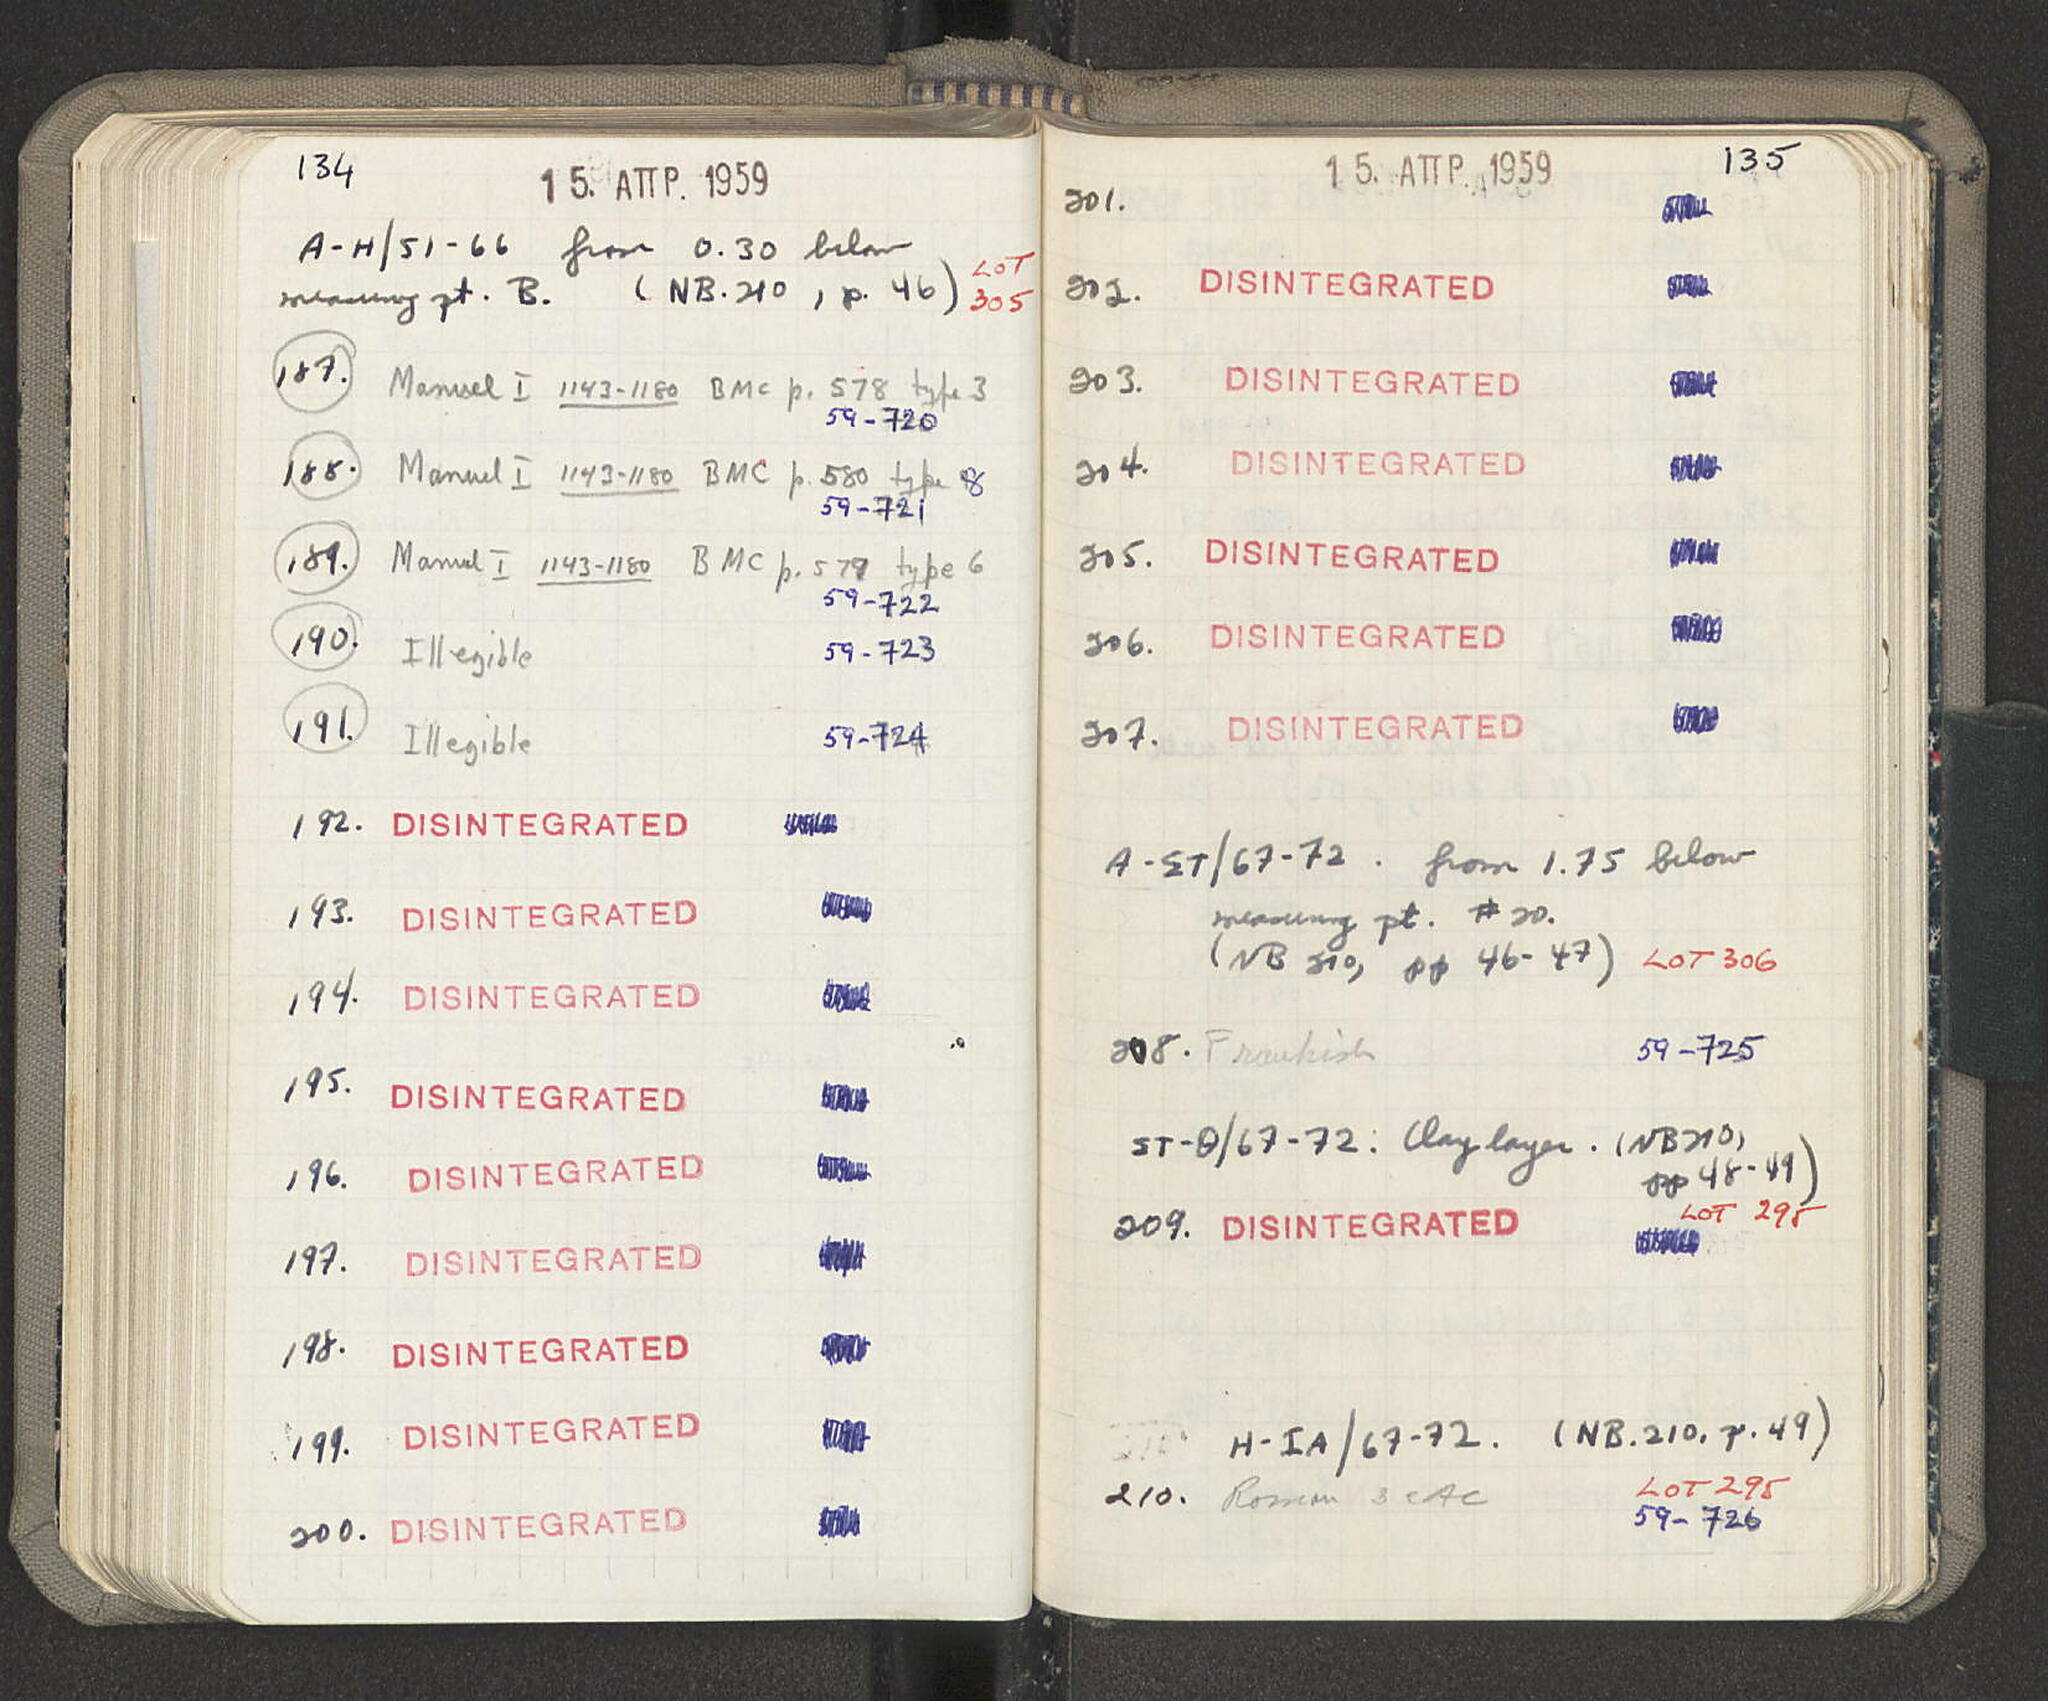 134
15. ΑΠΡ. 1959
A-H/51-66 from 0.30 below
measuring pt. B. (NB.210, p. 46) LOT 305
187. Manuel I 1143-1180 BMC p. 578 type 3
59-720
188. Manuel I 1143-1180 BMC p. 580 type 8
59-721
189. Manuel I 1143-1180 BMC p. 579 type 6
59-722
190. Illegible 59-723
191. Illegible 59-724
192. DISINTEGRATED
193. DISINTEGRATED
194. DISINTEGRATED
195. DISINTEGRATED
196. DISINTEGRATED
197. DISINTEGRATED
198. DISINTEGRATED
199. DISINTEGRATED
200. DISINTEGRATED
15. ΑΠΡ. 1959
135
201.
202. DISINTEGRATED
203. DISINTEGRATED
204. DISINTEGRATED
205. DISINTEGRATED
206. DISINTEGRATED
207. DISINTEGRATED
A-ΣT/67-72. from 1.75 below
measuring pt. #20.
(NB 210, pp 46-47) LOT 306
208. Frankish 59-725
ΣT-Θ/67-72: Clay layer. (NB 210,
pp 48-49)
LOT 295
209. DISINTEGRATED
H-IA/67-72. (NB.210, p. 49)
LOT 295
210. Roman 3 c AC
59-726